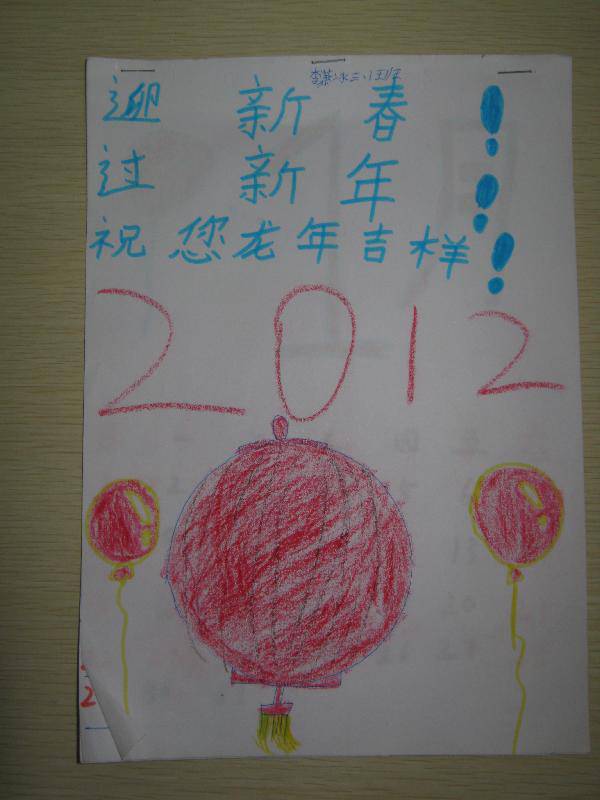 迎 新 春！
过 新 年！
祝您龙年吉样！
2012
2